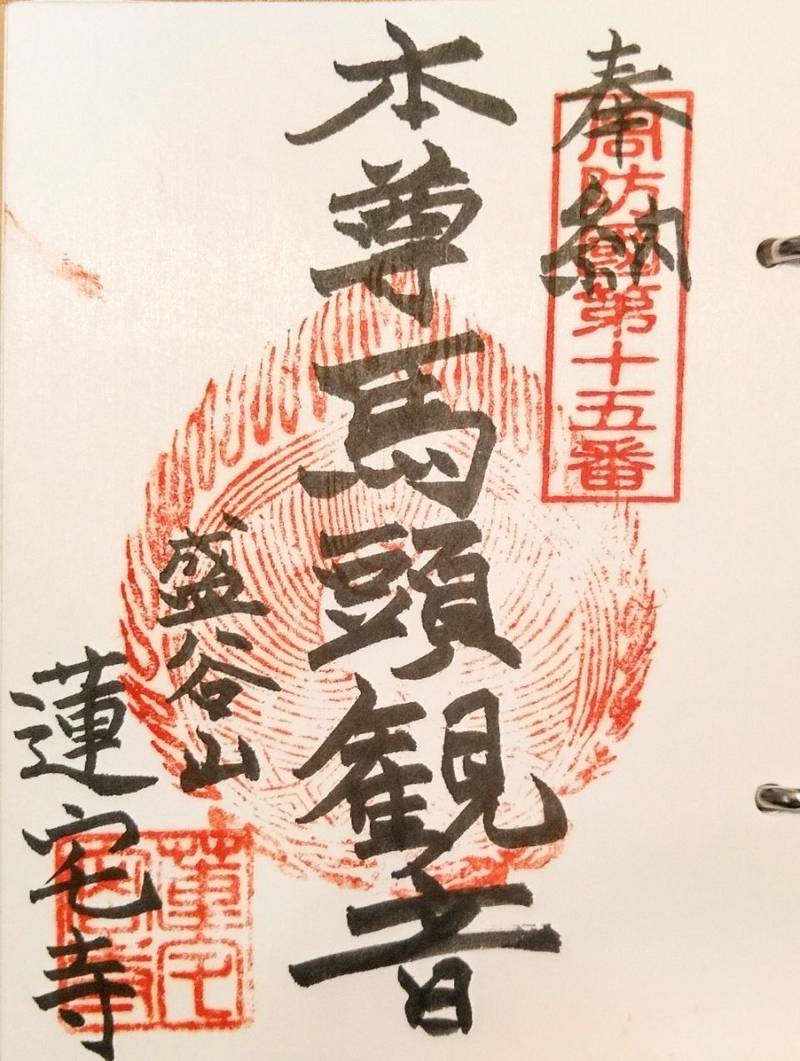 奉納
周防國第十五番
本尊馬頭観音
盛谷山
蓮宅寺